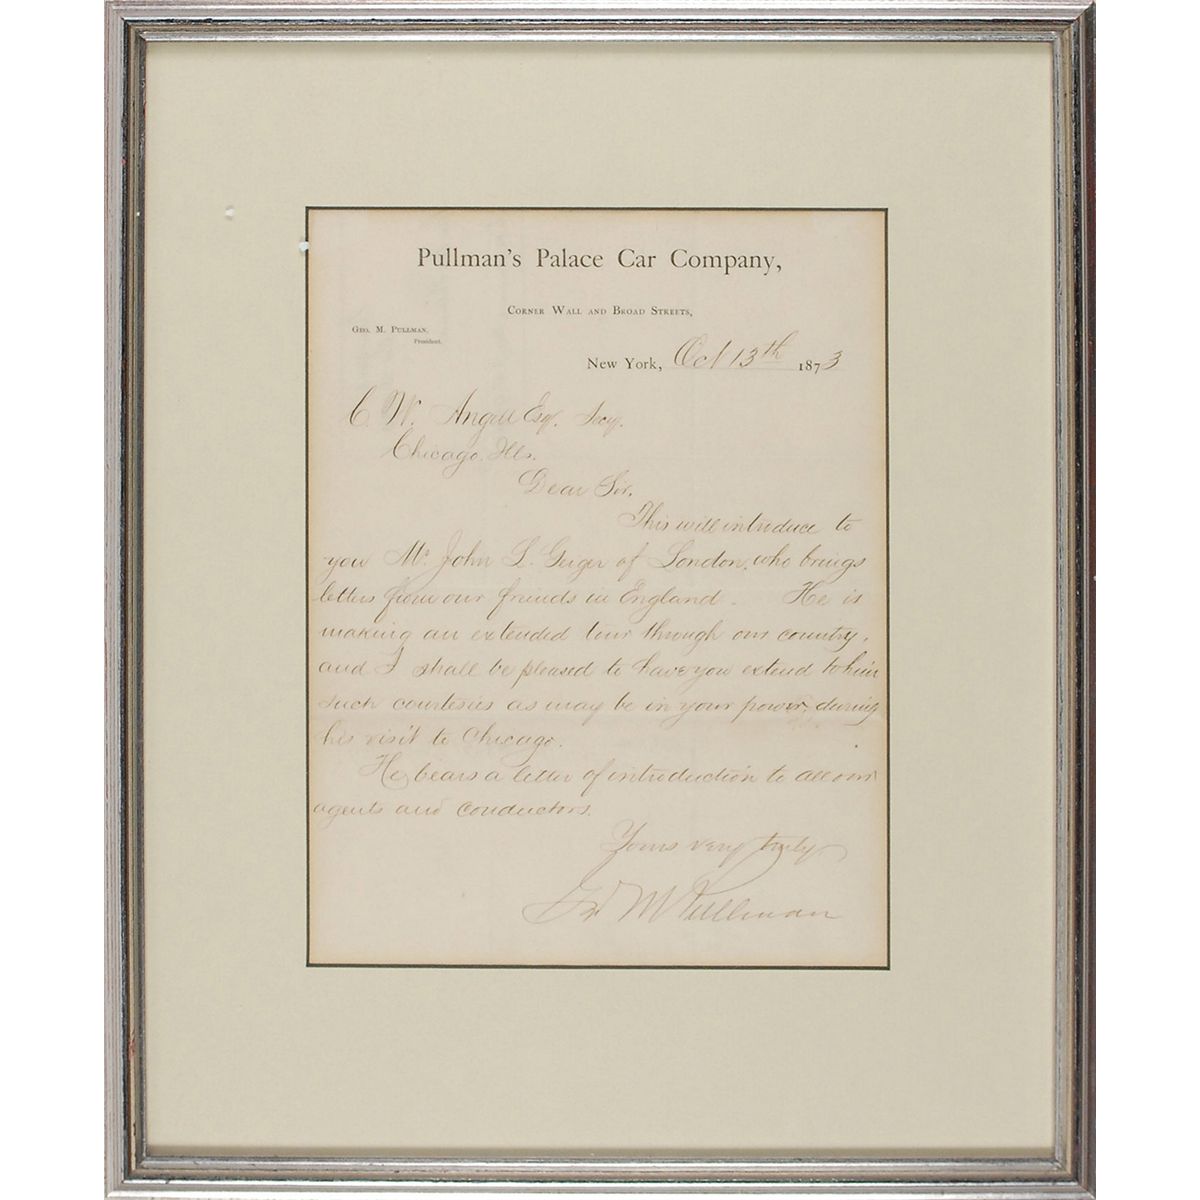 Pullman's Palace Car Company,
Corner Wall and Broad Streets,
Geo. M. Pullman,
President.
New York, Oct 13th 1873
C. W. Angell Esq. Secy.
Chicago. Ills.
Dear Sir,
This will introduce to
you Mr John L. Geiger of London, who brings
letters from our friends in England. He is
making an extended tour through our country,
and I shall be pleased to have you extend to him
such courtesies as may be in your power, during
his visit to Chicago.
He bears a letter of introduction to all our
agents and conductors.
Yours very truly
Geo M Pullman